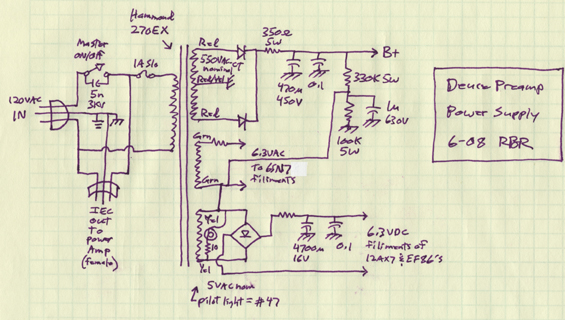 Hammond
270EX
Master
on/off
5n
3KV
1A Slo
120VAC
IN
IEC
out
To
power
Amp
(female)
Red
550VAC CT
nominal
Red/Yel
Red
350Ω
5W
B+
470µ
450V
0.1
330K 5W
1µ
630V
100K
5W
Grn
6.3VAC
To 6SN7
filiments
Grn
Yel
10
Yel
4700µ
16V
0.1
6.3VDC
filiments of
12AX7 & EF86's
5VAC nom
pilot light = #47
Deuce Preamp
Power Supply
6-08 RBR